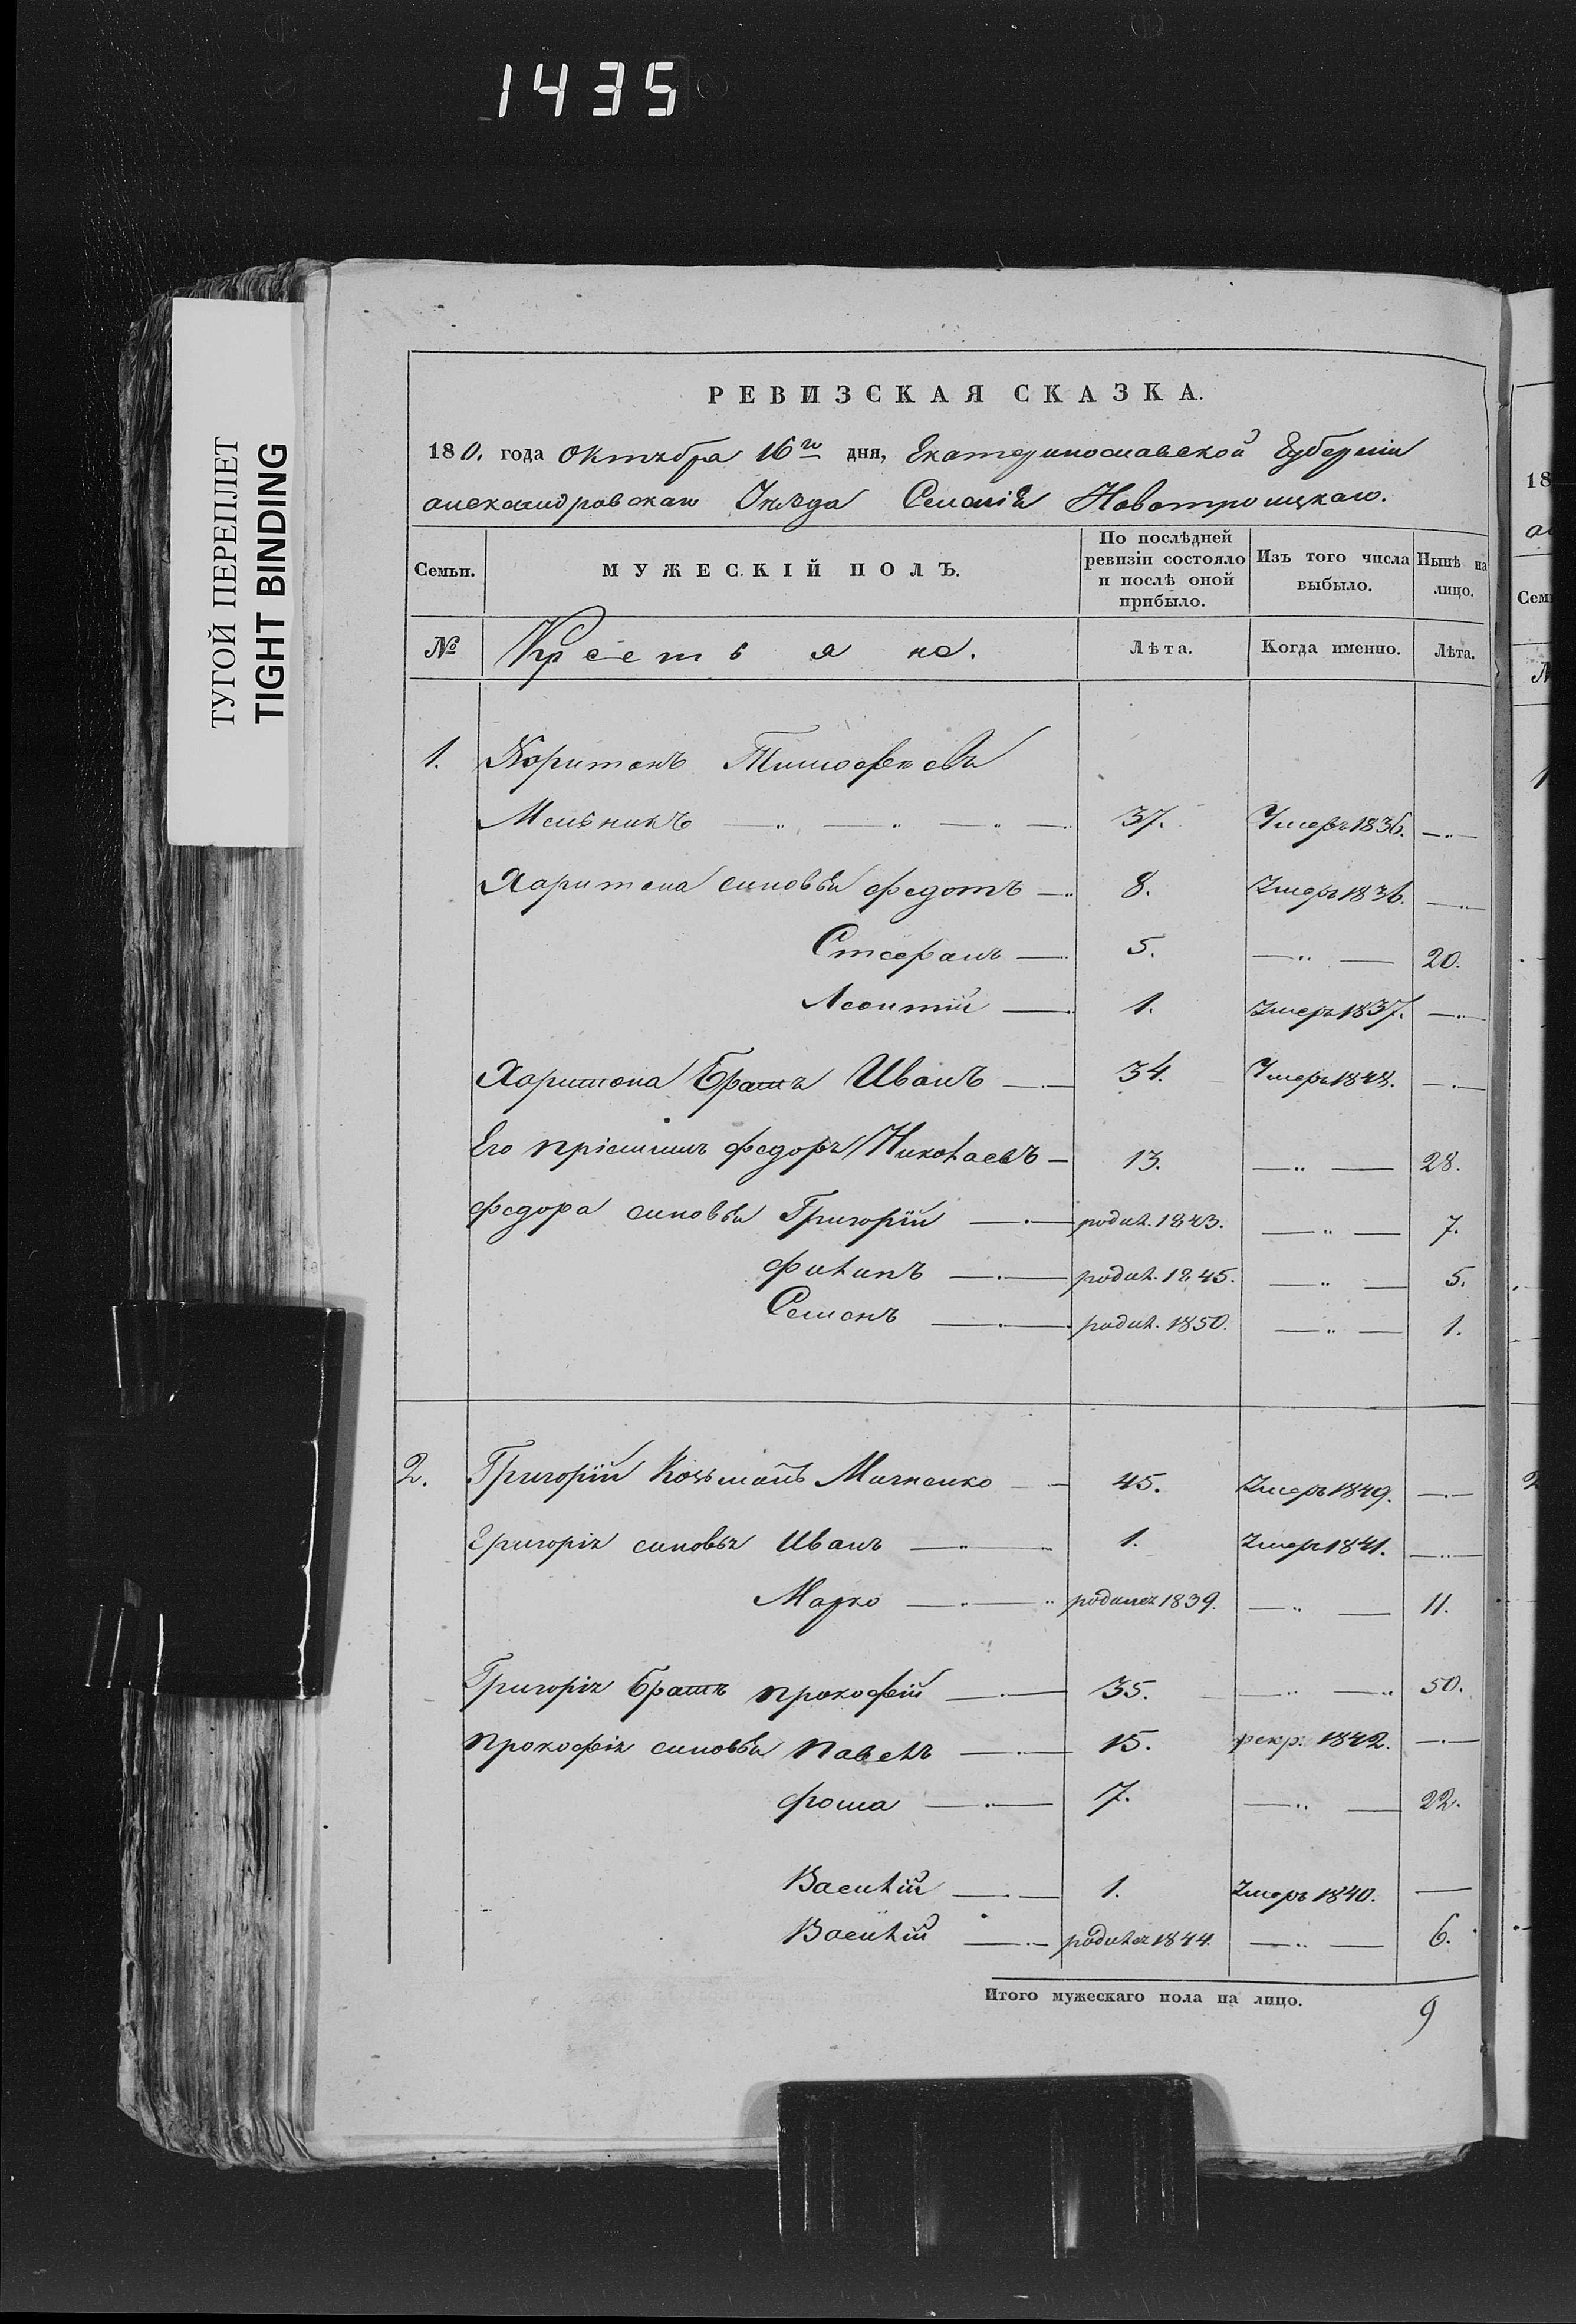 1435
ТУГОЙ ПЕРЕПЛЕТ
TIGHT BINDING
РЕВИЗСКАЯ СКАЗКА.
180. года Октября 16го дня, Екатеринославской Губерніи
александровскаго Уѣзда Селенія Новотроицкаго.
Семьи. МУЖЕСКІЙ ПОЛЪ. По послѣдней ревизіи состояло и послѣ оной прибыло. Изъ того числа выбыло. Нынѣ на лицо.
№ Крестьяне. Лѣта. Когда именно. Лѣта.
1. Харитонъ Тимофеевъ
Мельникъ 37. Умеръ 1836.
Харитона синовья федотъ 8. Умеръ 1836.
Стефанъ 5. 20.
Леонтій 1. Умеръ 1837.
Харитона Братъ Иванъ 34. Умеръ 1848.
Его пріемишъ федоръ Николаевъ 13. 28.
федора синовья Григорій родил. 1843. 7.
филипъ родил. 1845. 5.
Семенъ родил. 1850. 1.
2. Григорій Козьминъ Мигненко 45. Умеръ 1849.
Григорія синовья Иванъ 1. Умеръ 1841.
Марко родился 1839. 11.
Григорія Братъ прокофій 35. 50.
Прокофія синовья Павелъ 15. рекр: 1842.
фома 7. 22.
Василій 1. Умеръ 1840.
Василій родился 1844. 6.
Итого мужескаго пола на лицо. 9
18
Сем
№
1
2